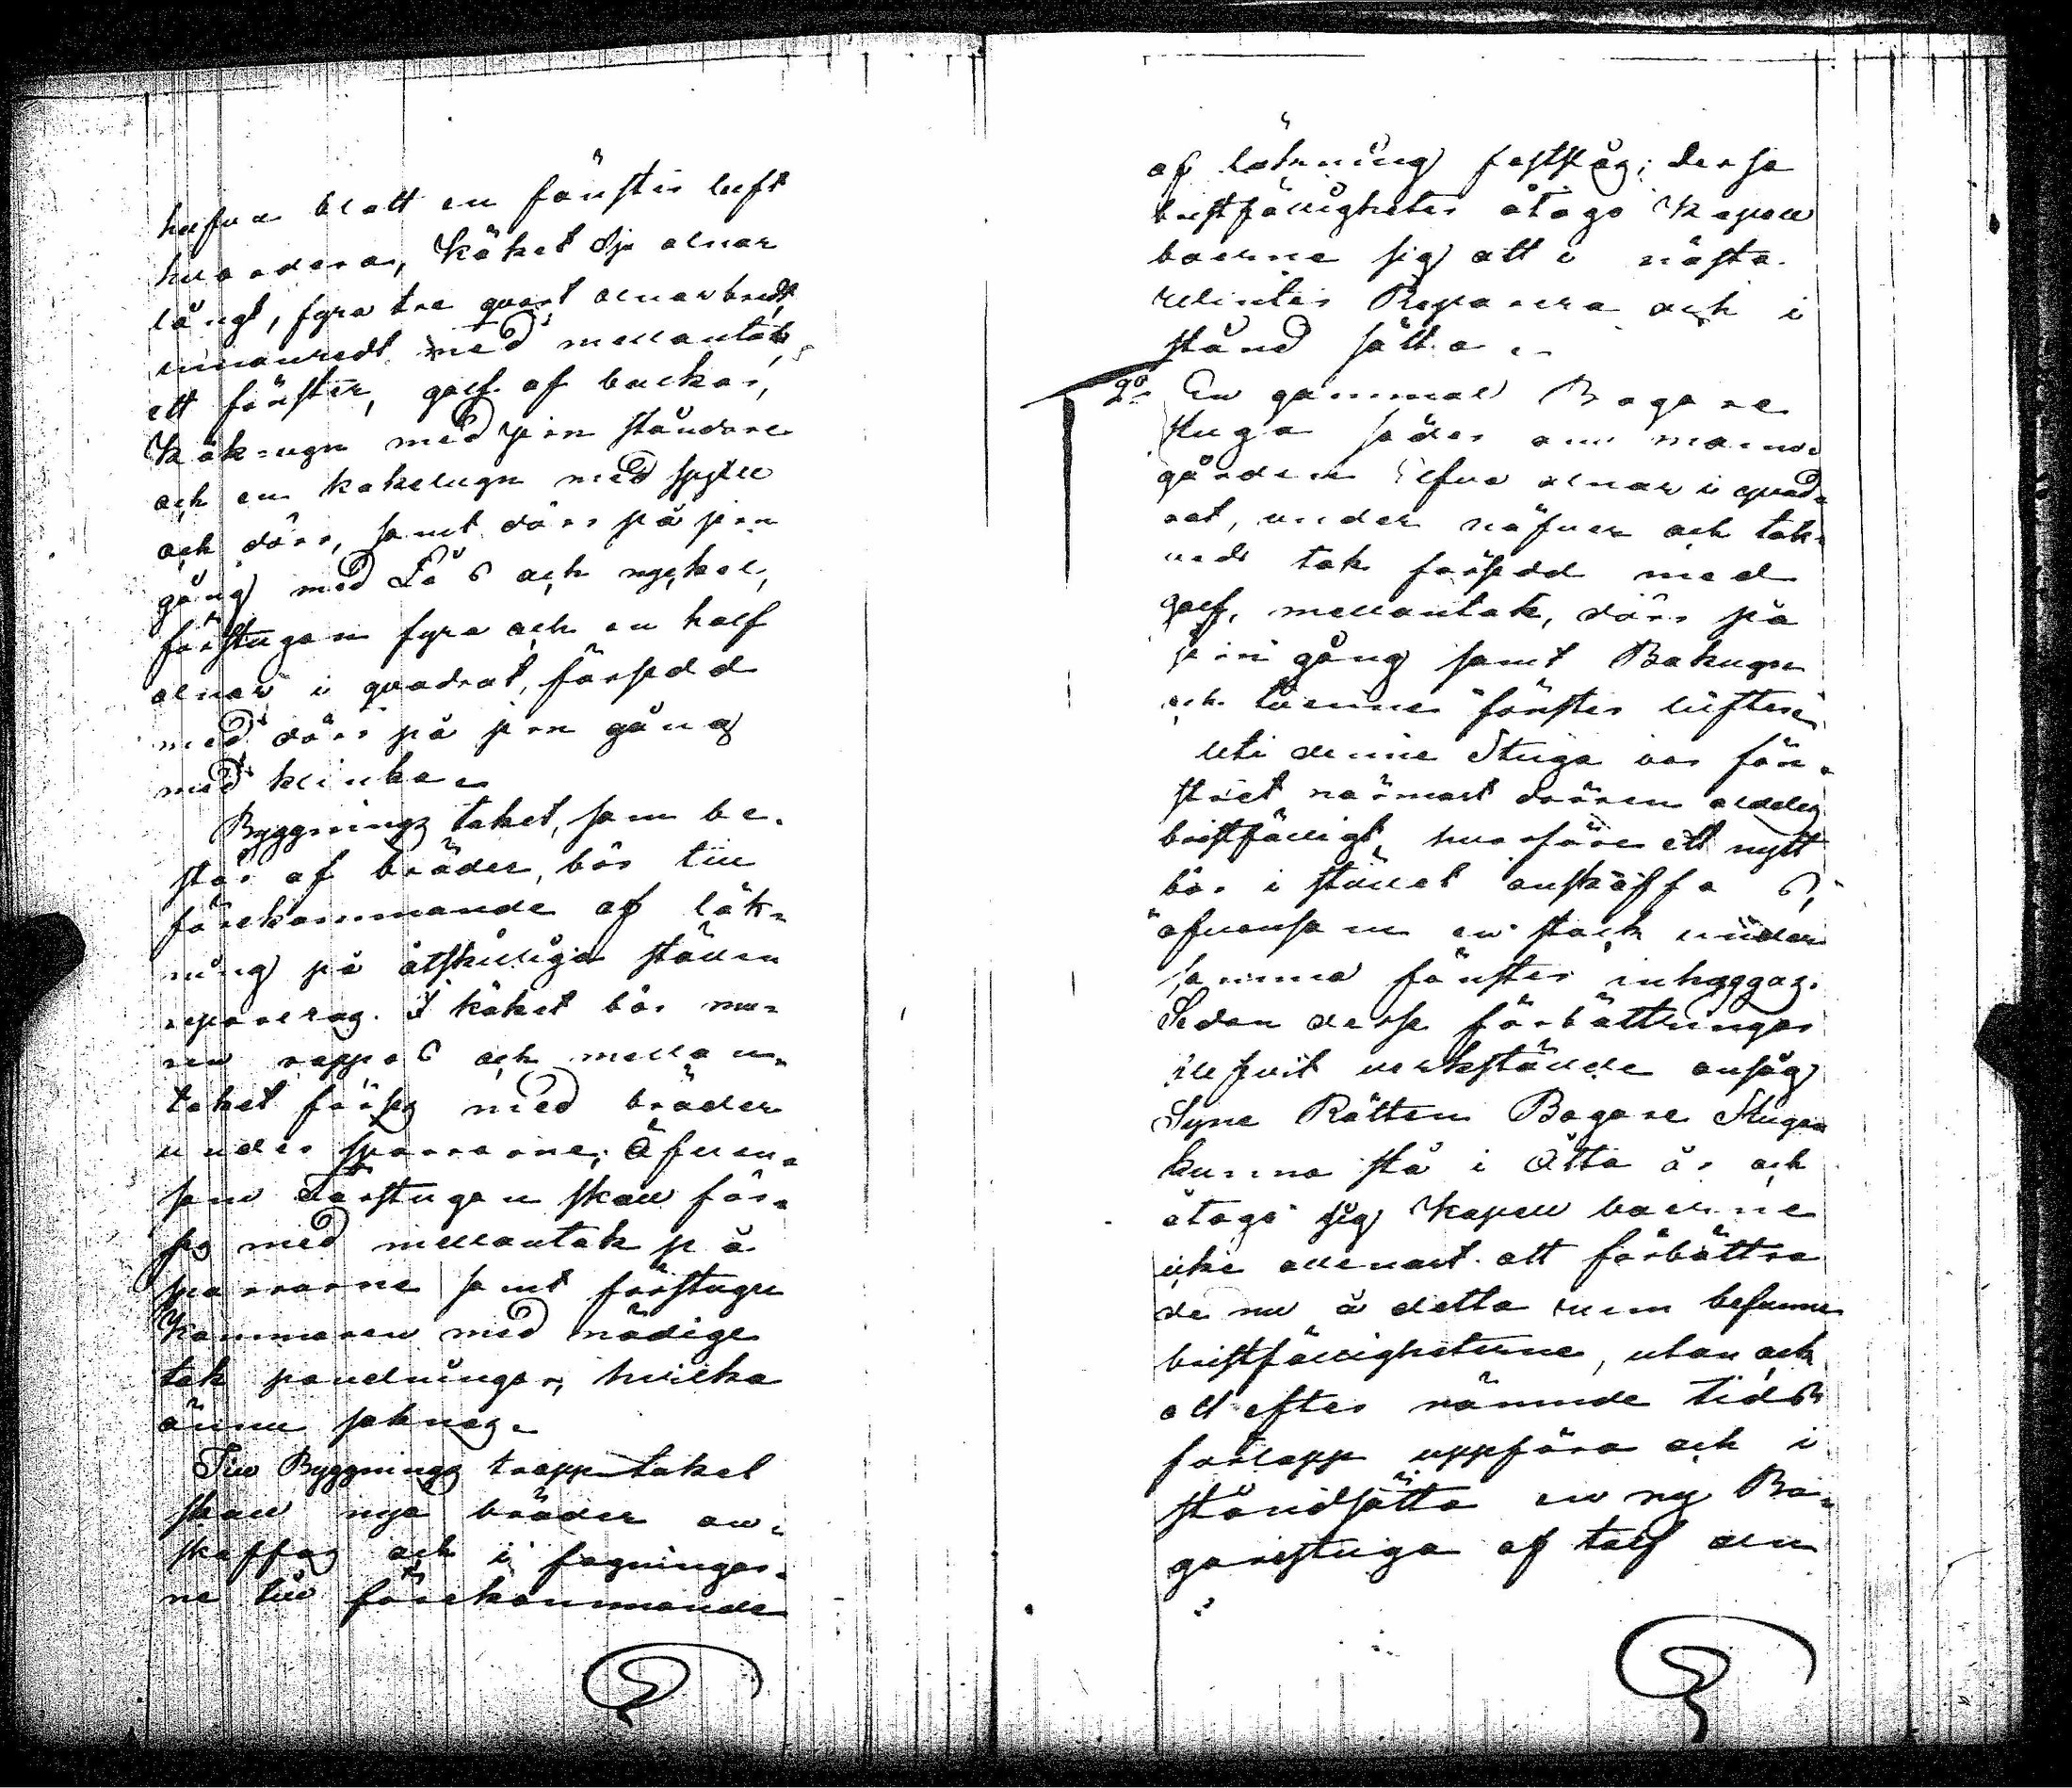 hafva blott en fönster luft
hvardera, Köket sju alnar
långt, fyra tre quart alnar bredt
innanredt med mellantak,
ett fönster, golf af backar,
Köksugn med jern ståndare
och en kakelugn med spjell
och dörr, samt dörr på jern
gång med Lås och nyckel,
förstugan fyra och en half
alnar i quadrat, försedd
med dörr på jern gång
med klinka.
Byggnings taket, som be-
står af bräder, bör till
förekommande af läk-
ning på åtskilliga ställen
repareras. I köket bör mu-
ren rappas och mellan-
taket förses med bräder
under sparrarne; Äfven-
som Förstugan skall för-
ses med mellantak på
sparrarne samt förstugu
Kammaren med nödige
tak panelningar, hvilka
ännu saknas.
Till Byggnings trapptaket
skall nya bräder an-
skaffas och i fogningar-
ne till förekommande
af läkning fastslås; dessa
bristfälligheter åtogo Kapell
boerne sig att i nästa
reliuter Reparera och i
stånd sätta.
2o En gammal Bagare
stuga söder om mann-
gården Elfva alnar i quad-
rat, under näfver och tak-
ved tak försedd med
golf, mellantak, dörr på
jern gång samt Bakugn
och tvenne fönster lufter.
Uti denne Stuga var fön-
stret närmast dörren aldeles
bristfälligt, hvarföre ett nytt
bör i stället anskaffas,
äfvensom en stock under
samma fönster inhyggas.
Sedan desse förbättringar
blifvit verkstälde ansåg
Syne Rätten Bagare Stugan
kunna stå i Åtta år och
åtogo sig Kapell boerne
icke allenast att förbättra
de nu å detta rum befunne
bristfälligheterne, utan ock
att efter nämnde tids
förlopp uppföra och i
ståndsätta en ny Ba-
garestuga af tolf aln